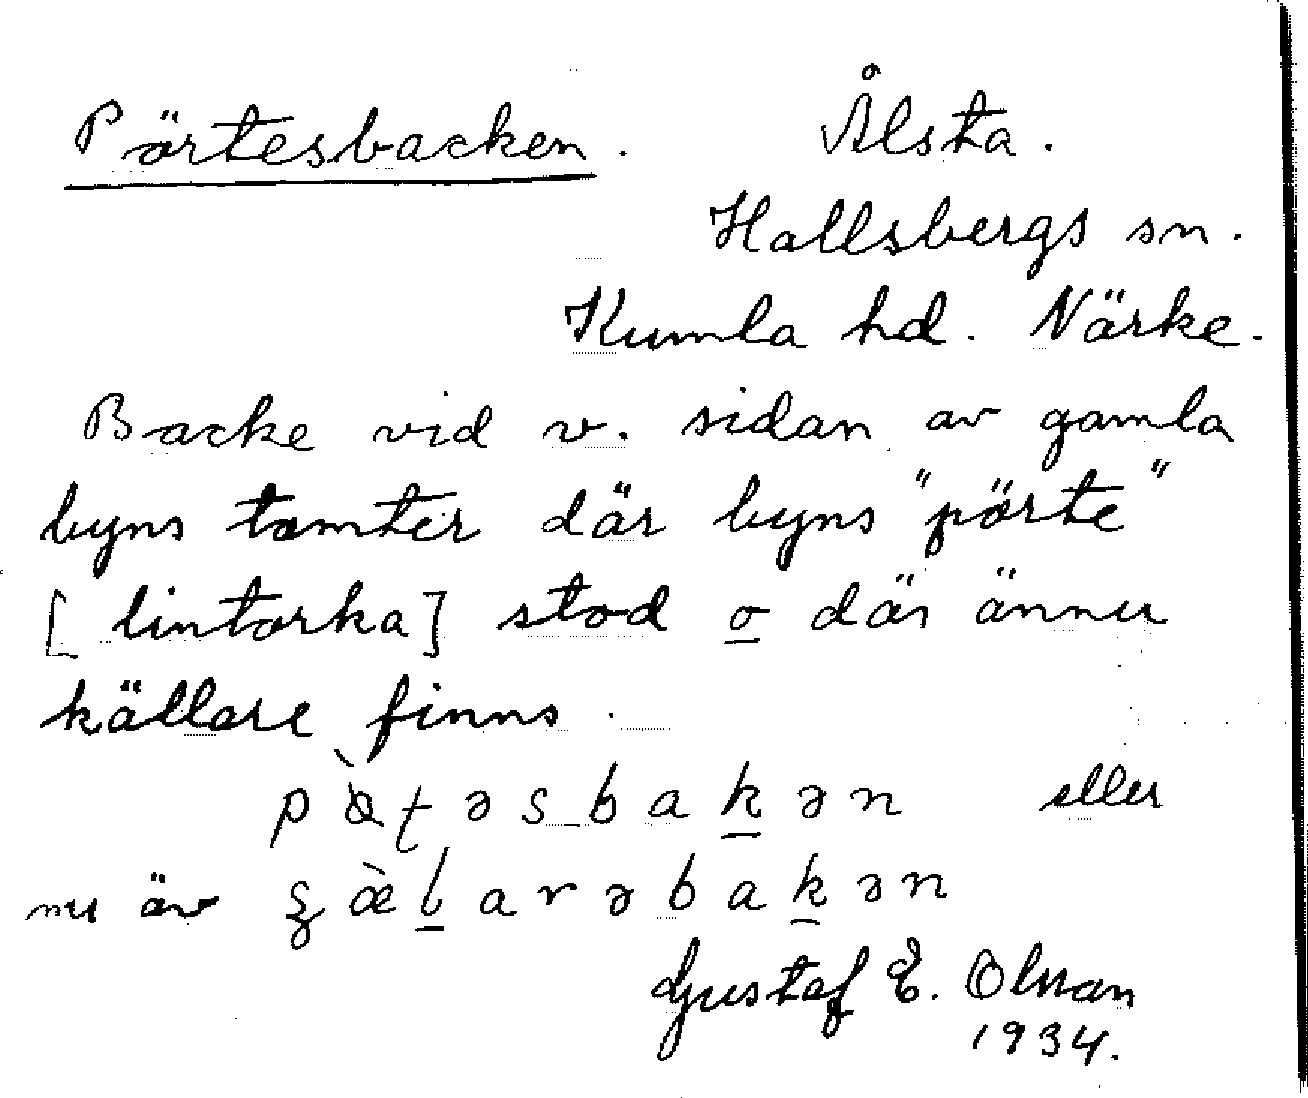 Pörtesbacken. Ålsta.
Hallsbergs sn.
Kumla hd. Närke.
Backe vid v. sidan av gamla
byns tomter där byns "pörte"
[lintorka] stod o där ännu
källare finns.
eller
nu äv
Gustaf E. Olsson
1934.